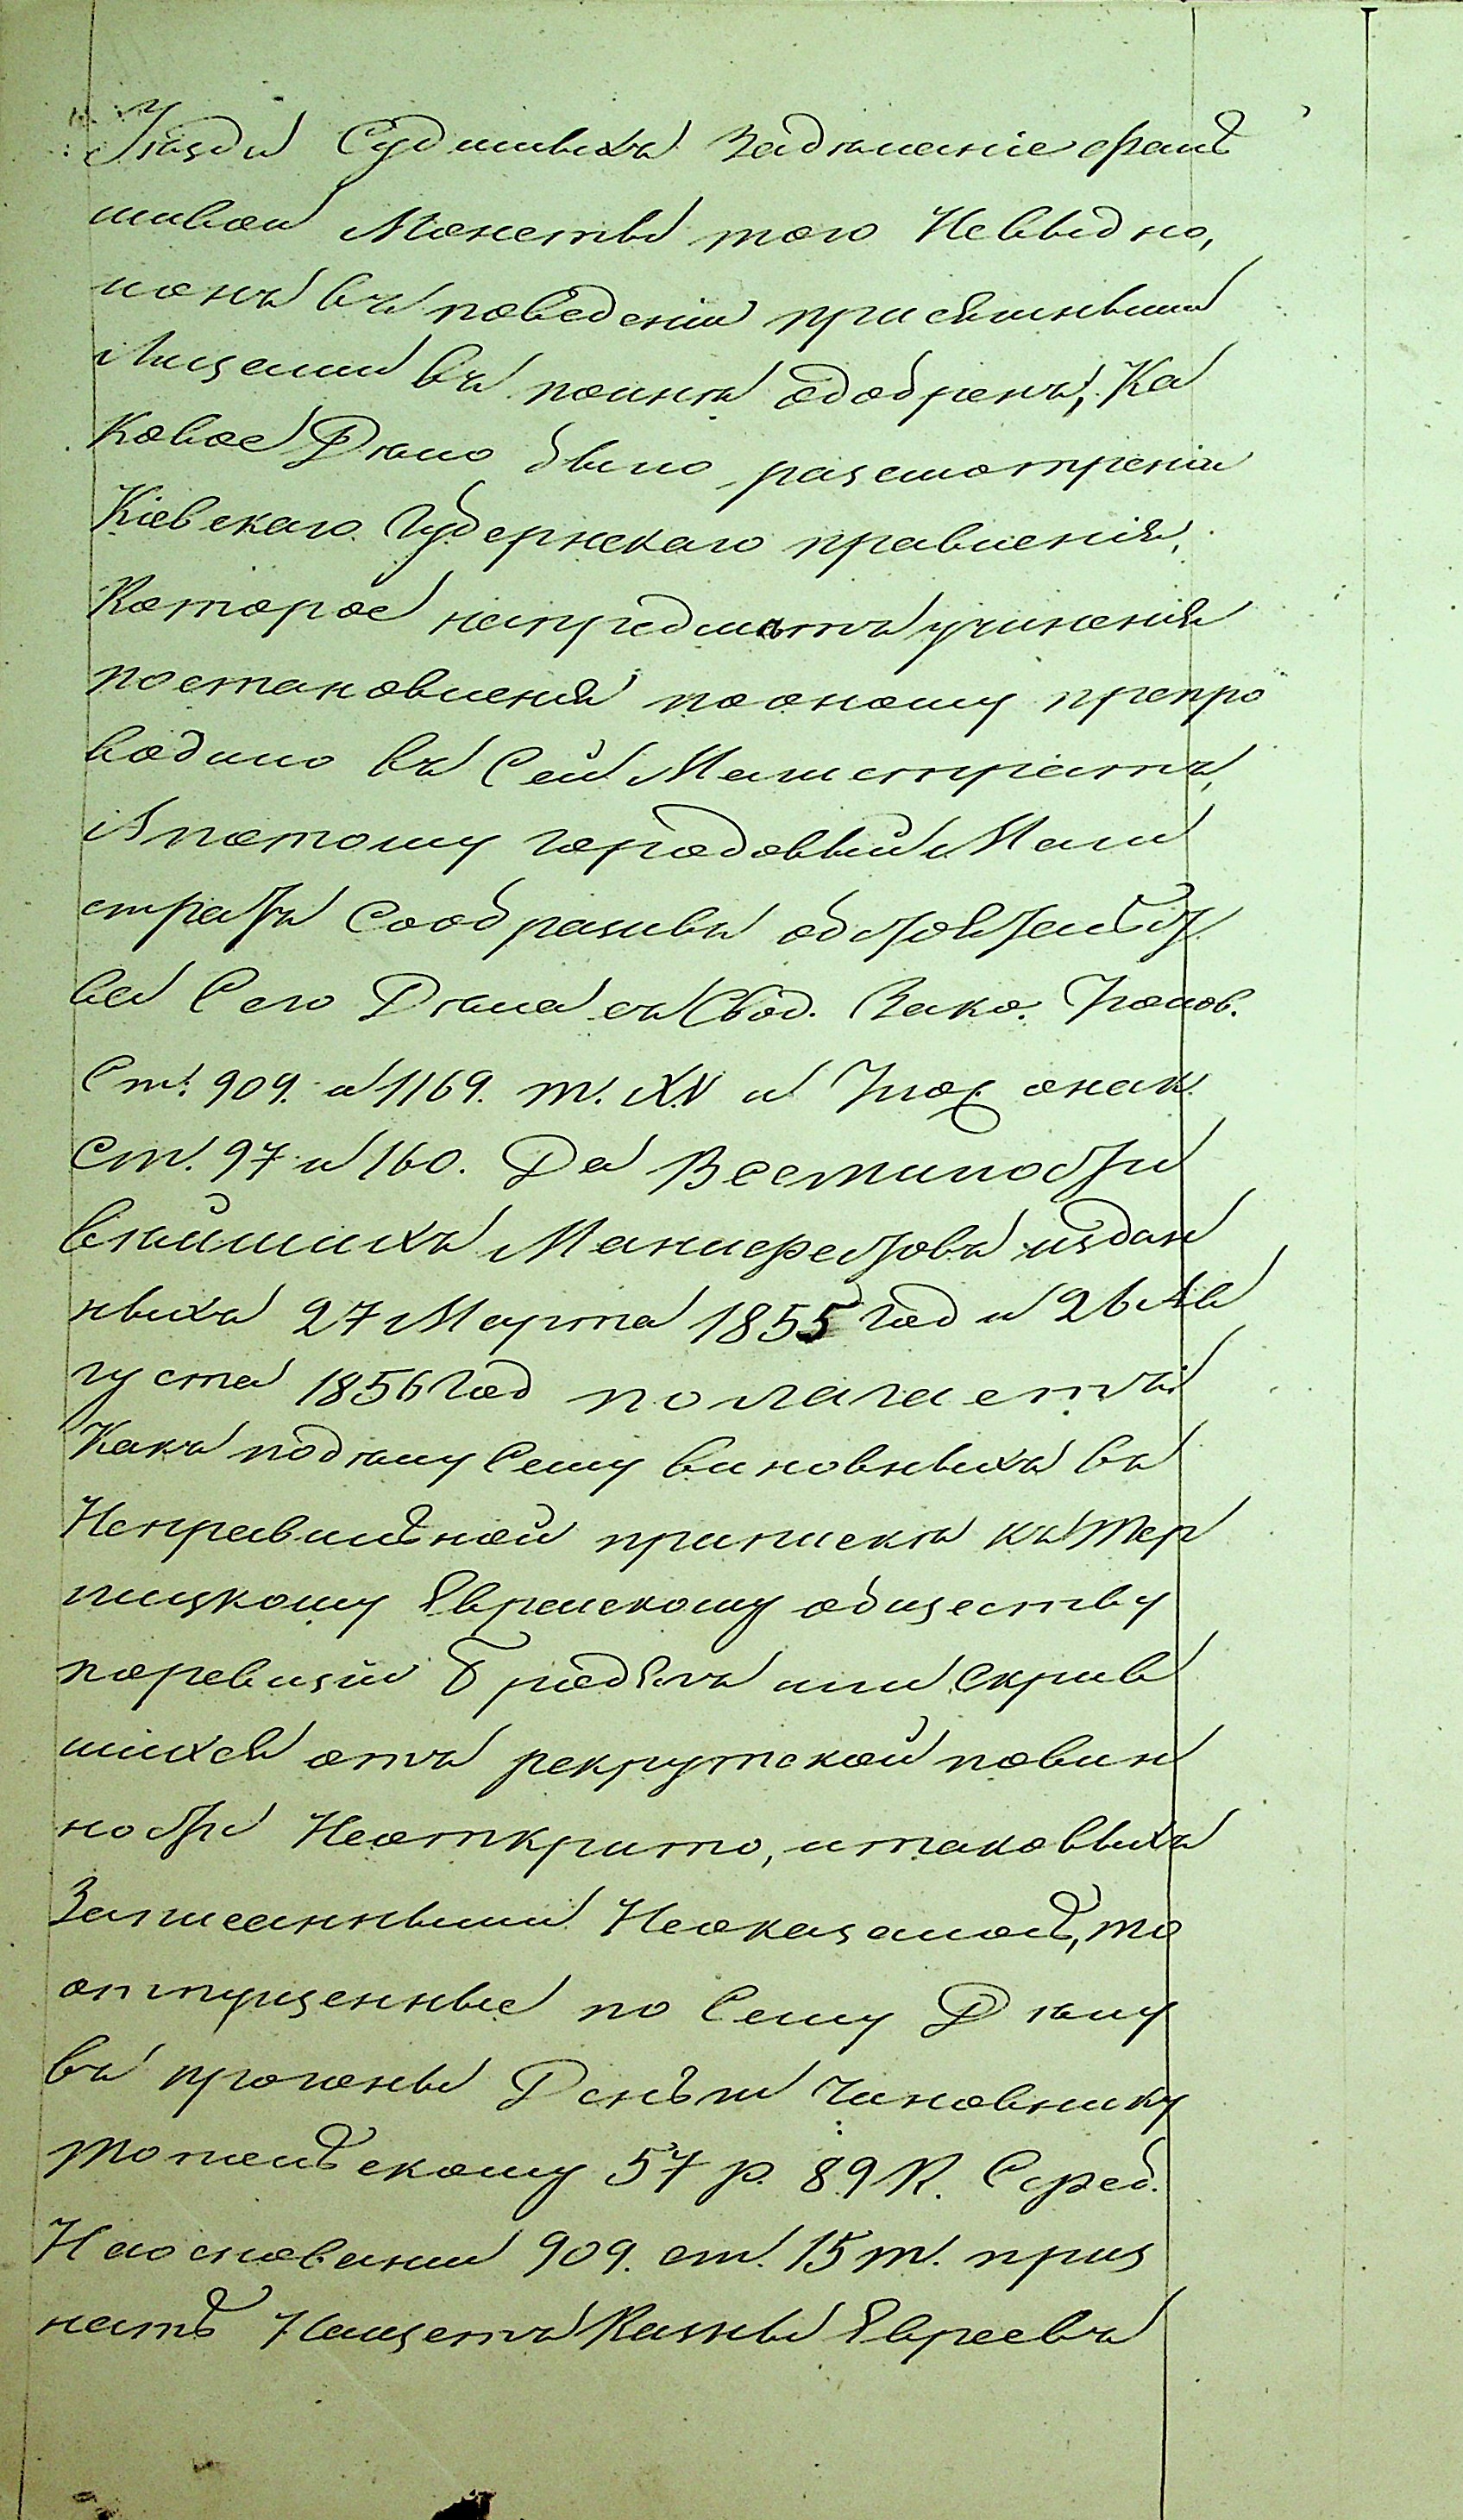 судимыхъ за дѣланіе фаль
шивой монеты того невидно,
ионъ въ поведеніи присяжными
лицами въ полнѣ одобренъ, Ка
ковое Дѣло было разсмотреніи
Кіевскаго Губернскаго правленія,
Которое напредметъ учиненія
постановленія пооному препро
водило въ Сей Магистратъ,
Апотому городовый Маги
стратъ Сообразивъ обстоятельст
ва Сего Дѣла съ Свод. Зако. Уголов.
Ст. 909. и 1169. т. XV и Улож. онак.
Ст. 97 и 160. Да Всемилости
вѣйшихъ Манифестовъ издан
ныхъ 27 Марта 1855 год и 26 Ав
густа 1856 год полагаетъ
Какъ подѣлу Сему виновныхъ въ
Неправильной припискѣ къ Тер
лицкому Еврейскому обществу
поревизіи Бродягъ или Скрив
шихся отъ рекрутской повин
ности Неоткрито, итаковыхъ
Записанными Неоказалось, то
отпущенные по Сему Дѣлу
въ прогоны Деньги Чиновнику
Топольскому 57 р. 89 к. Сереб.
На основании 909. ст. 15 т. приз
нать Нащетъ Казны Евреевъ